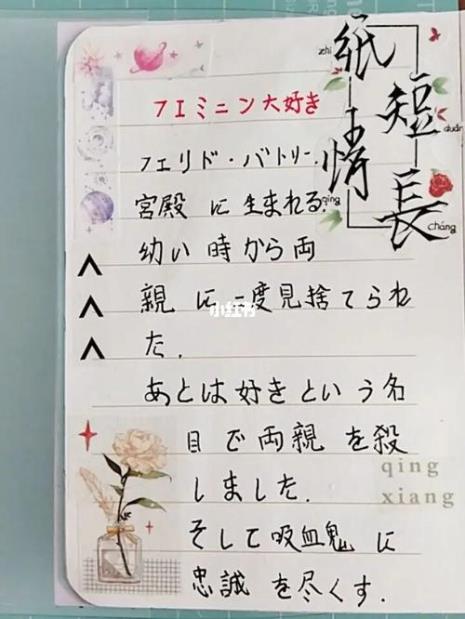 紙短情長
zhi
duǎn
qíng
cháng
フエミニン大好き
フェリド・バトリー.
宮殿に生まれる.
幼い時から両
親に二度見捨てられ
た.
あとは好きという名
目で両親を殺
しました.
そして吸血鬼に
忠誠を尽くす.
qing
xiang
小红书